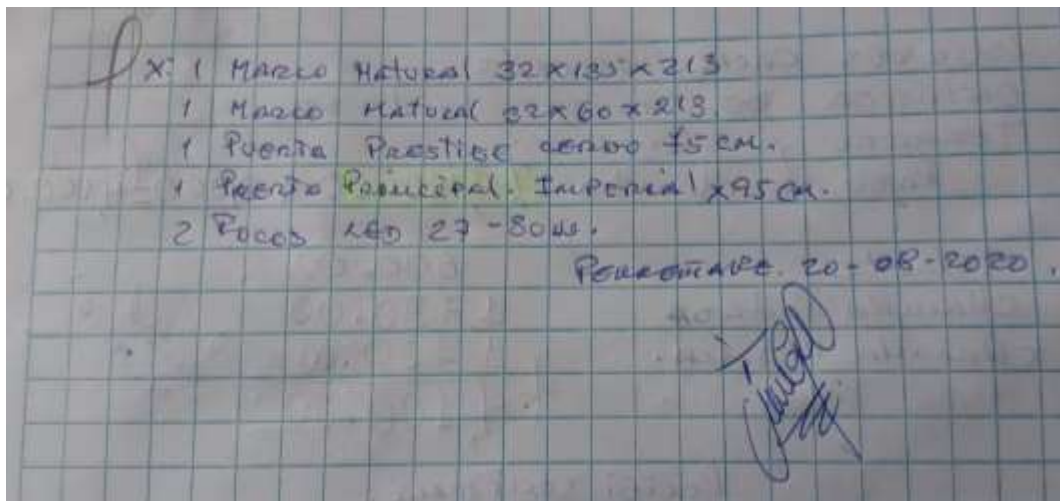 X: 1 Marco Natural 32x135x213
1 Marco Natural 32x60x213.
1 Puerta Prestige 75 cm.
1 Puerta Principal. Imperial x95 cm.
2 Focos LED 27-80w.
20-08-2020.